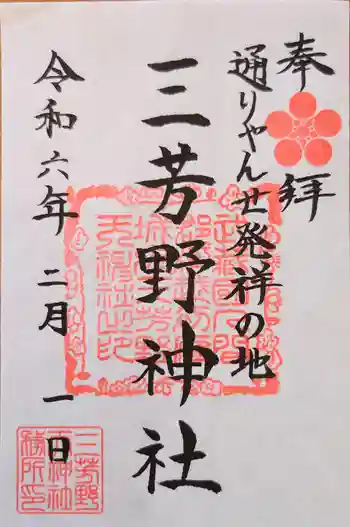 奉拝
通りゃんせ発祥の地
三芳野神社
令和六年 二月 一日
三芳野
神社
務所印